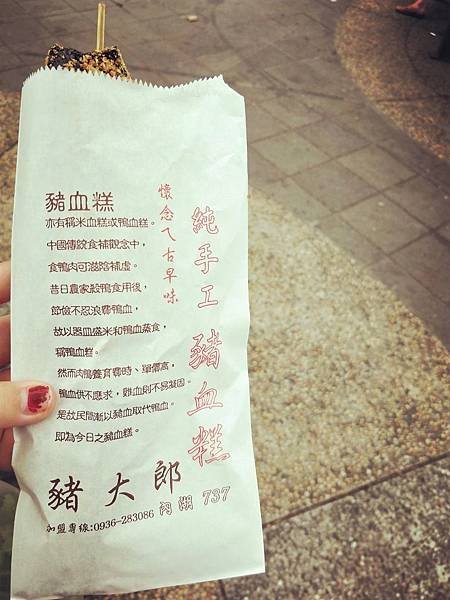 豬血糕
亦有稱米血糕或鴨血糕。
中國傳統食補觀念中，
食鴨肉可滋陰補虛。
昔日農家殺鴨食用後，
節儉不忍浪費鴨血，
故以器皿盛米和鴨血蒸食，
稱鴨血糕。
然而肉鴨養育費時、單價高，
鴨血供不應求，雞血則不易凝固。
是故民間漸以豬血取代鴨血。
即為今日之豬血糕。
懷念ㄟ古早味
純手工豬血糕
豬大郎
內湖 737
加盟專線:0936-283086